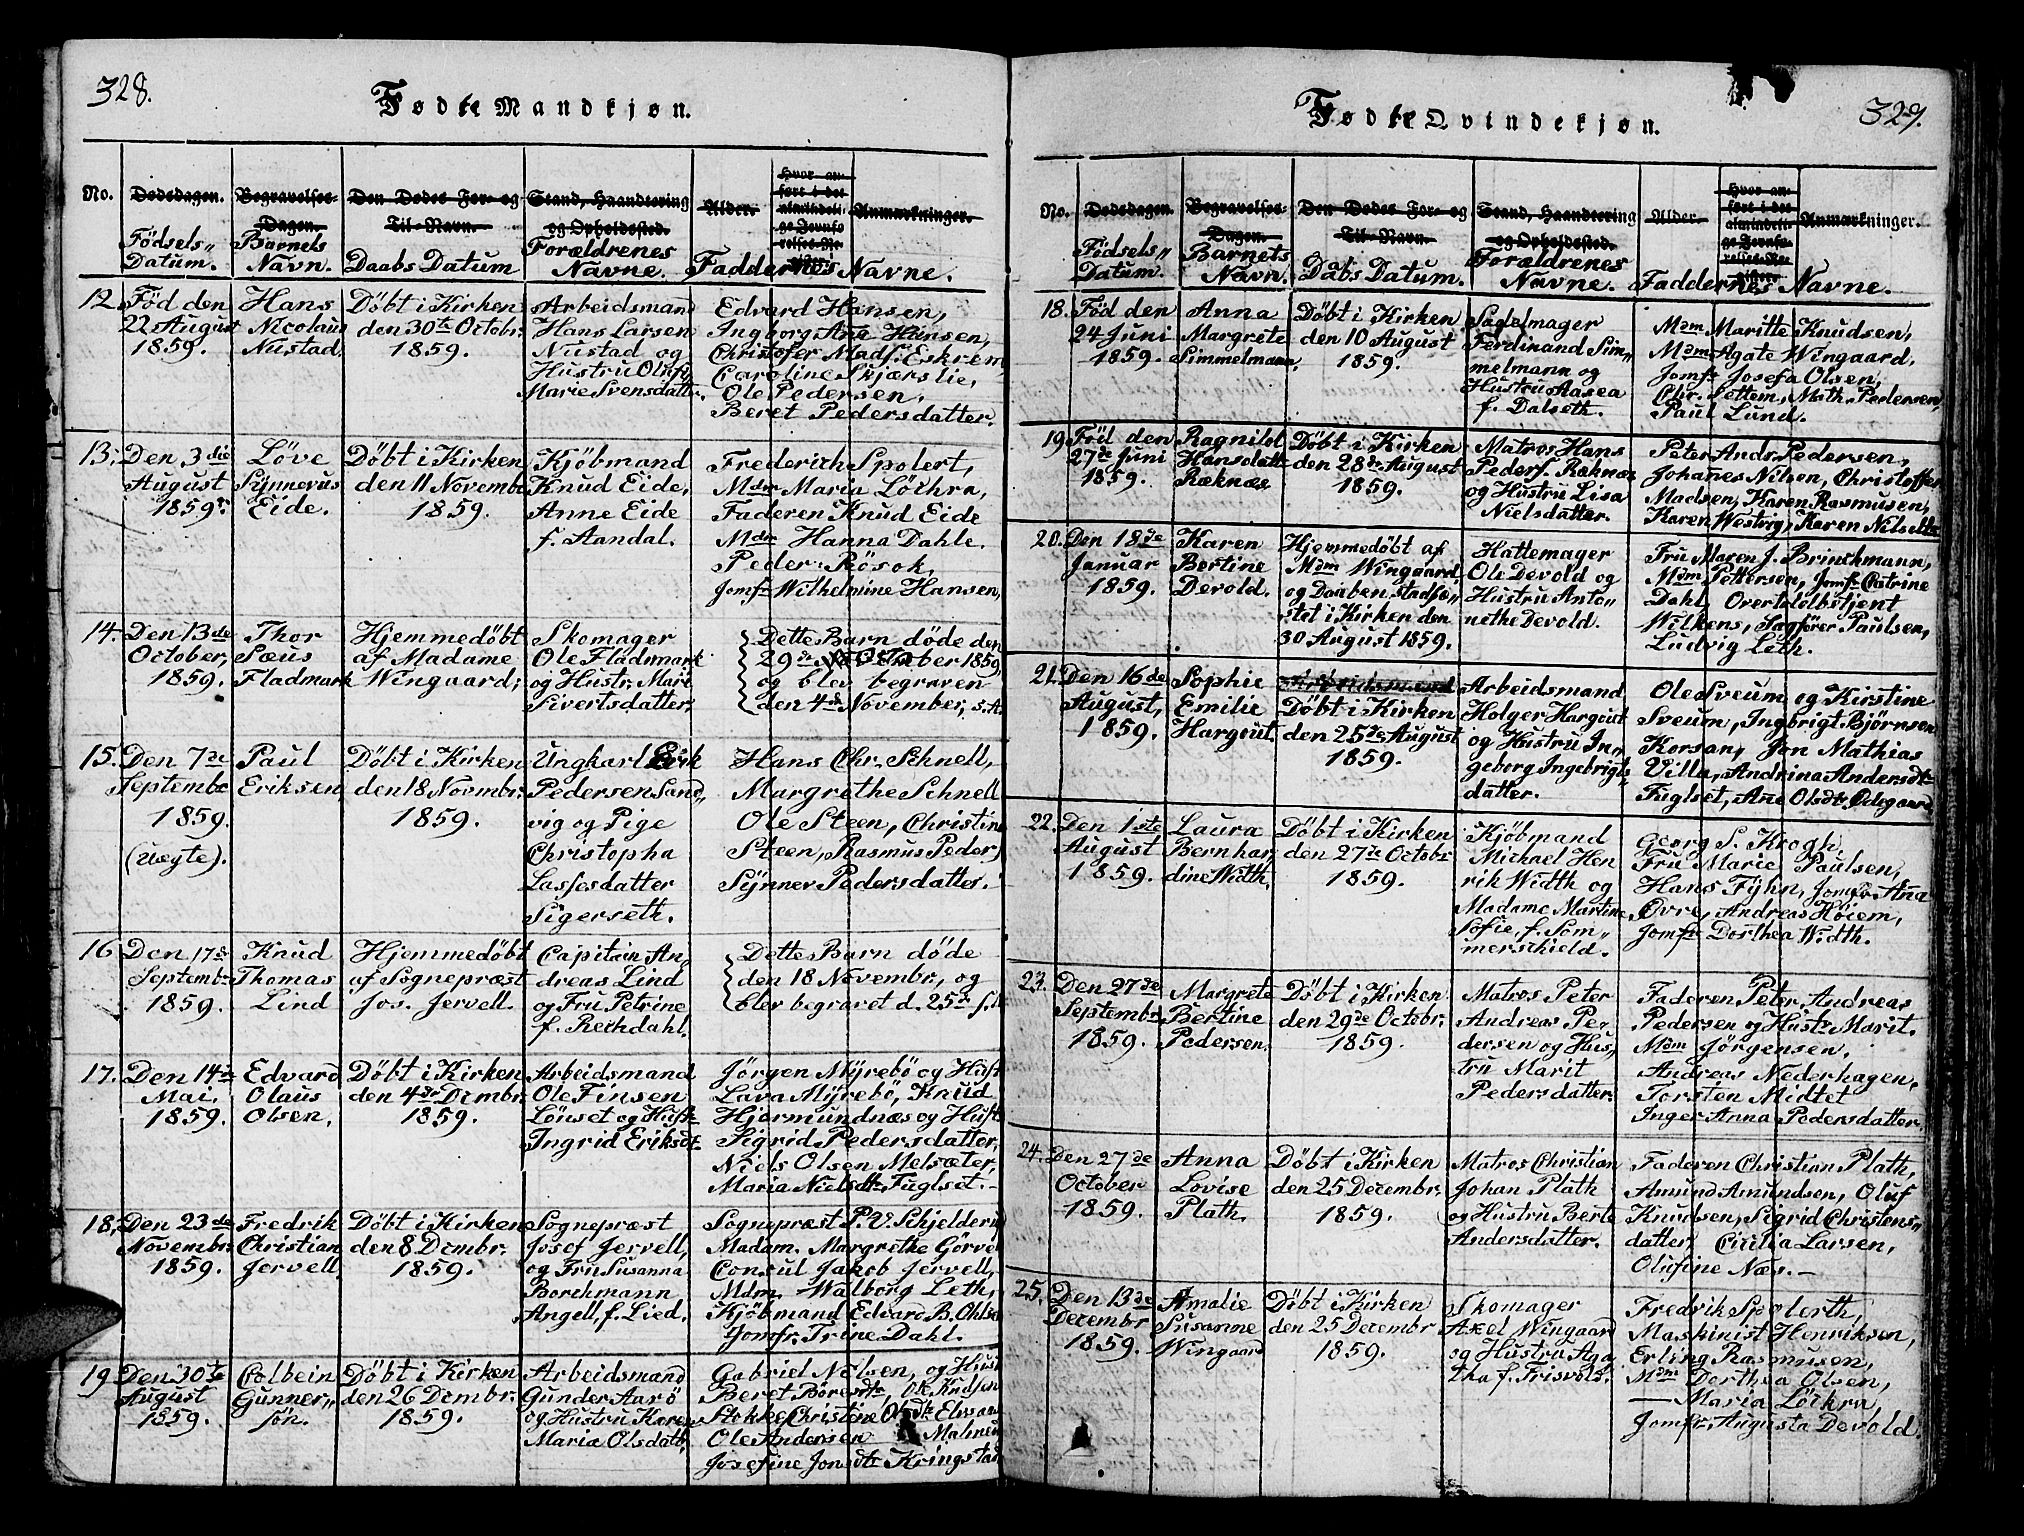 328.
Fødte Mandkjøn.
No.
Dødsdagen.
Fødsels„
Datum.
Begravelses-
Dagen.
Barnets
Navn.
Den Dødes For- og
Til-Navn.
Daabs Datum
Stand, Haandtering
og Opholdssted.
Forældrenes
Navne.
Alder.
Hvor an-
ført i det
almindeli-
ge Jevnfø-
relses-Re-
Anmærkninger.
Faddernes Navne.
12
Föd den
22 August
1859.
Hans
Nicolaus
Nustad.
Döbt i Kirken
den 30te Octobr.
1859.
Arbeidsmand
Hans Larsen
Nustad og
Hustru Olufi
Marie Svensdatter.
Edvard Hansen,
Ingborg Ane Hansen,
Christofer Mads. Eskrem
Caroline Skjærslie,
Ole Pedersen,
Beret Pedersdatter.
13.
Den 3die
August
1859.
Löve
Synnevus
Eide.
Döbt i Kirken
den 11 Novembr
1859.
Kjöbmand
Knud Eide,
Anne Eide
f. Aandal.
Frederich Spolert,
Mdm Maria Löchra,
Faderen Knud Eide
Mdm Hanna Dahle.
Peder Rösok,
Jomfr Wilhelmine Hansen,
14.
Den 13de
October,
1859.
Thor
Sæus
Fladmark
Hjemmedöbt
af Madame
Wingaard;
Skomager
Ole Fladmark
og Hustr. Mari
Sivertsdatter,
Dette Barn döde den
29de October 1859
og blev begraven
den 4de November, s.A.
15.
Den 7de
Septembr
1859.
(Uegte).
Paul
Eriksen
Döbt i Kirken
den 18 Novmbr.
1859.
Ungkarl Erik
Pedersen Sand„
vig og Pige
Christopha
Lassesdatter
Sigerseth.
Hans Chr. Schnell,
Margrethe Schnell
Ole Steen, Christine
Steen, Rasmus Peder„
Synnev Pedersdatter.
16
Den 17de
Septembr
1859.
Knud
Thomas
Lind
Hjemmedöbt
af Sognepræst
Jos. Jervell.
Capitain An„
dreas Lind
og Fru Petrine
f. Rechdahl.
Dette Barn döde
den 18 Novembr, og
blev begravet d. 25de s.A.
17.
Den 14de
Mai.
1859.
Edvard
Olaus
Olsen,
Döbt i Kirken
den 4de Dcmbr.
1859.
Arbeidsmand
Ole Finsen
Lönset og Hust.
Ingrid Eriksdt.
Jörgen Myrebö og Hust
Lava Myrebö, Knud
Hjermundnæs og Hust
Sigrid Pedersdatter,
Niels Olsen Melsæter,
Maria Nielsdtr Fuglset.
18.
Den 23de
Novembr.
1859.
Fredrik
Christian
Jervell.
Döbt i Kirken
den 8 Dcmbr.
1859.
Sognepræst
Josef Jervell,
og Fru Susanna
Borchmann
Angell, f. Lied.
Sognepræst P. V. Schjelderup
Madam. Margrethe Görvel
Consul Jakob Jervell,
Mdm. Walborg Leth,
Kjöbmand Edvard B. Ohlsen
Jomfr. Trine Dahl.
19
Den 30te
August
1859.
Colbein
Gunner„
sön.
Döbt i Kirken
den 26 Dcmbr.
1859.
Arbeidsmand
Gunder Aarö
og Hustru Karen
Maria Olsdatt.
Gabriel Nilsen, og Hust
Beret Börresdtr, Ole Knudsen
Stokke, Christine Olsdtr
Ole Andersen Malmen
Josefine Jonsdtr Kringstad
329.
Fødte Qvindekjøn.
No.
Dødsdagen.
Fødsels„
Datum.
Begravelses-
Dagen.
Barnets
Navn.
Den Dødes For- og
Til-Navn.
Dabs Datum.
Stand, Haandtering
og Opholdssted.
Forældrenes
Navne.
Alder.
Hvor an-
ført i det
almindeli-
ge Jevnfø-
relses-Re-
gister.
Anmærkninger.
Faddernes Navne.
18.
Föd den
24 Juni
1859.
Anna
Margrete
Simmelmann.
Döbt i Kirken
den 10 August
1859.
Sadelmager
Ferdinand Sim„
melmann og
Hustru Aasea
f. Dalseth.
Mdm Maritte Knudsen,
Mdm Agate Wingaard,
Jomfr Josefa Olsen,
Chr. Settem, Math. Pedersen,
Paul Lund.
19.
Föd den
27de Juni
1859.
Ragnild
Hansdatt
Ræknæs.
Döbt i Kirken
den 28de August
1859.
Matros Hans
Peders. Ræknæs
og Hustru Lisa
Nielsdatter.
Peter Ands Pedersen,
Johanes Nilsen, Christoffer
Madsen, Karen Rasmusen,
Karen Westvig, Karen Nilsdtr
20.
Den 18de
Januar
1859.
Karen
Bertine
Devold.
Hjemmedöbt af
Mdm Wingaard
og Daaben stadfæ„
stet i Kirken den
30 August 1859.
Hattemager
Ole Devold og
Hustru Anto„
nethe Devold.
Fru Maren J. Brinchmann,
Mdm Pettersen, Jomfr Catrine
Dahl, Overtoldbetjent
Wilkens, Sagförer Paulsen,
Ludvig Leth.
21.
Den 16de
August,
1859.
Sophie
Emilie
Hargout.
Döbt i Kirken
den 25de August
1859.
Arbeidsmand
Holger Hargout
og Hustru In„
geborg Ingebrigts„
datter.
Ole Sveum og Kirstine
Sveum, Ingbrigt Bjørnsen
Korsan, Jon Mathias
Villa, Andrina Andersdtr
Fuglset, Ane Olsdtr Ødegaard
22.
Den 1ste
August
1859.
Laura
Bernhar„
dine Width.
Döbt i Kirken
den 27de Octobr
1859.
Kjöbmand
Michael Hen
rik Width og
Madame Martine
Sofie, f. Som„
merschield.
Georg S. Krogh,
Fru Marie Paulsen,
Hans Fyhn, Jomfr Ana
Øvre, Andreas Höiem,
Jomfr Dorthea Width.
23.
Den 27de
Septembr
1859.
Margrete
Bertine
Pedersen.
Döbt i Kirken
den 29de Octobr.
1859.
Matros Peter
Andreas Pe„
dersen og Hus„
tru Marit
Pedersdatter.
Faderen Peter Andreas
Pedersen og Hustr Marit.
Mdm Jörgensen,
Andreas Nederhagen,
Torsten Midtet
Inger Anna Pedersdatter.
24.
Den 27de
October
1859.
Anna
Lovise
Plath.
Döbt i Kirken
den 25 Decembr.
1859.
Matros Christian
Johan Plath
og Hustru Berte
Andersdatter.
Faderen Christian Plath,
Amund Amundsen, Oluf
Knudsen, Sigrid Christens„
datter, Cicilia Larsen,
Olufine Næs.
25.
Den 13de
Decembr
1859.
Amalie
Susanne
Wingaard
Döbt i Kirken
den 25 Decembr
1859.
Skomager
Axel Wingaard
og Hustru Aga
tha f. Frisvold.
Fredrik Spolerth,
Maskinist Henriksen,
Erling Rasmusen,
Mdm Dorthea Olsen,
— Maria Löchra,
Jomfr. Augusta Devold.